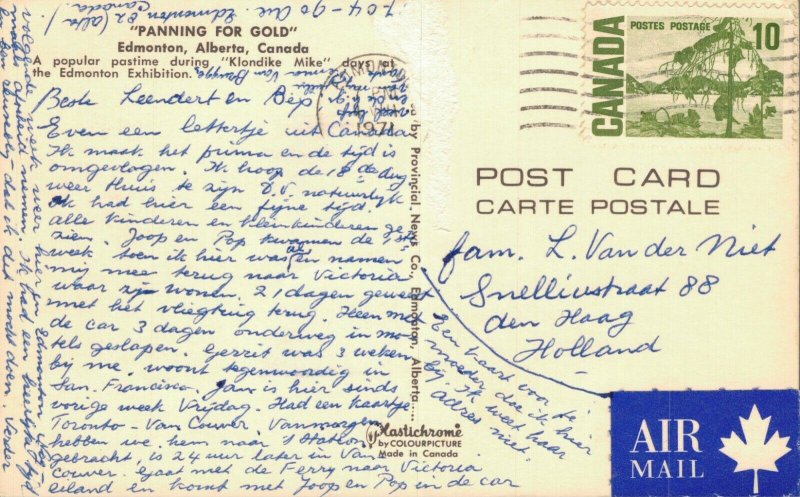 704-90 Ave. Edmonton 82 (Alta)
Canada.
"PANNING FOR GOLD"
Edmonton, Alberta, Canada
A popular pastime during "Klondike Mike" days at
the Edmonton Exhibition.
Beste Leendert en Bep
Even een lettertje uit Canada
Ik maak het prima en de tijd is
omgevlogen. Ik hoop de 18de Aug
weer thuis te zijn D.V. natuurlijk
Ik had hier een fijne tijd.
alle kinderen en kleinkinderen ge-
zien. Joop en Pop kwamen de 1ste
week toen ik hier was en namen
mij mee terug naar Victoria
waar zij wonen. 21 dagen geweest
met het vliegtuig terug. Heen met
de car 3 dagen onderweg in mo-
tels geslapen. Gerrit was 3 weken
bij me. woont tegenwoordig in
San. Francisco. Jan is hier sinds
vorige week Vrijdag. Had een kaartje
Toronto - Van Couver. Vanmorgen
hebben we hem naar 't Station
gebracht, is 24 uur later in Van
Couver. Gaat met de Ferry naar Victoria
eiland en komt met Joop en Pop in de car
volgende week weer hier in Edmonton
afscheid nemen. Ik had een heerlijke tijd
dat ik dit mocht doen. Verder
by Provincial News Co., Edmonton, Alberta
Plastichrome
by COLOURPICTURE
Made in Canada
1971
CANADA
POSTES POSTAGE
10
POST CARD
CARTE POSTALE
fam. L. Van der Niet
Snelliusstraat 88
den Haag
Holland
Een kaart voor je
moeder doe ik hier
bij. Ik weet haar
adres niet.
AIR
MAIL